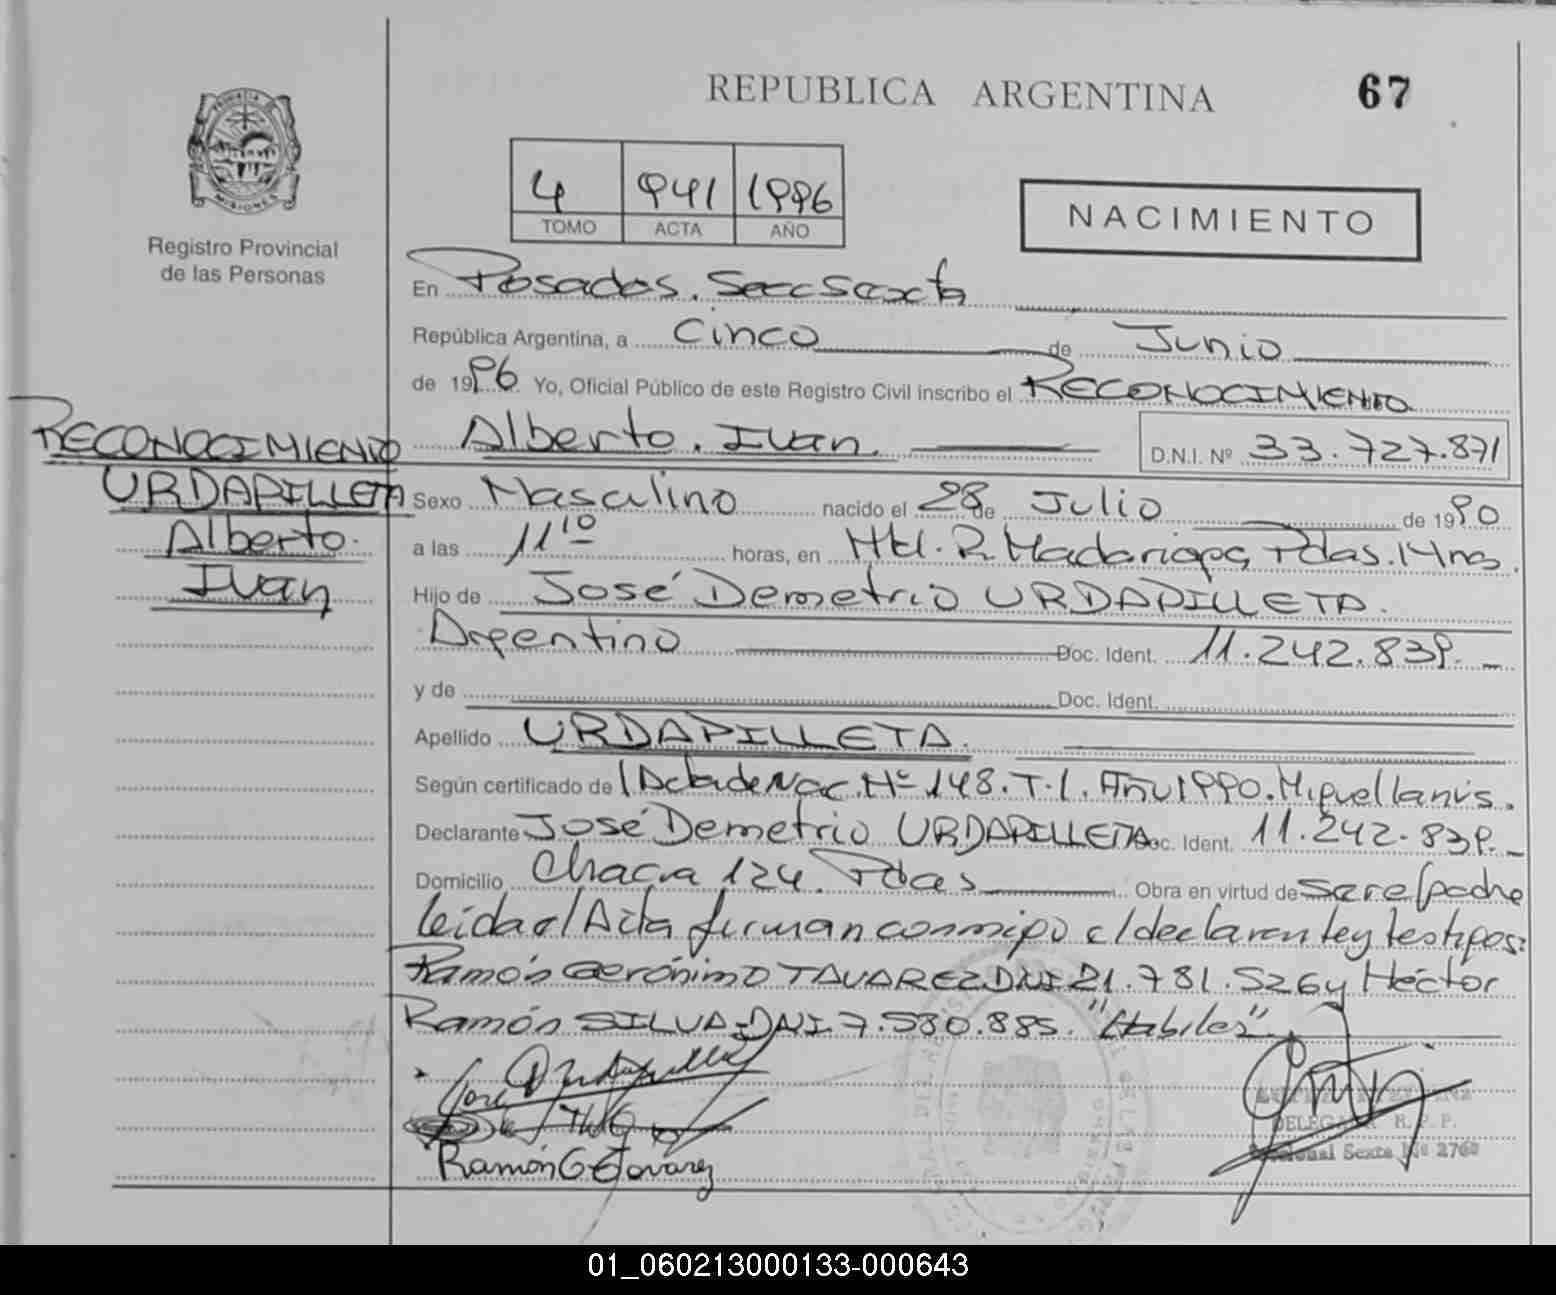 REPUBLICA ARGENTINA
67
PROVINCIA DE
MISIONES
Registro Provincial
de las Personas
4 941 1996
TOMO ACTA AÑO
NACIMIENTO
En Posadas. Secc Sexta
República Argentina, a Cinco de Junio
de 1996 Yo, Oficial Público de este Registro Civil inscribo el RECONOCIMIENTO
Alberto. Ivan. D.N.I. Nº 33.727.871
RECONOCIMIENTO
URDAPILLETA
Alberto.
Ivan
Sexo Masculino nacido el 28 de Julio de 1990
a las 11 10 horas, en Htal. R. Madariaga, Pdas. Mnes.
Hijo de José Demetrio URDAPILLETA.
Argentino Doc. Ident. 11.242.839.
y de Doc. Ident.
Apellido URDAPILLETA.
Según certificado de Acta de Nac. Nº 148. T. 1. Año 1990. Miguel Lanús.
Declarante José Demetrio URDAPILLETA Doc. Ident. 11.242.839.
Domicilio Chacra 124. Pdas Obra en virtud de ser el padre
leida el Acta firman conmigo el declarante y testigos:
Ramón Gerónimo TAVAREZ DNI 21.781.526 y Héctor
Ramón SILVA-DNI 7.580.885. "Hábiles"
Ramón G Tavarez
DELEGADA R. P. P.
Seccional Sexta Nº 2760
01_060213000133-000643